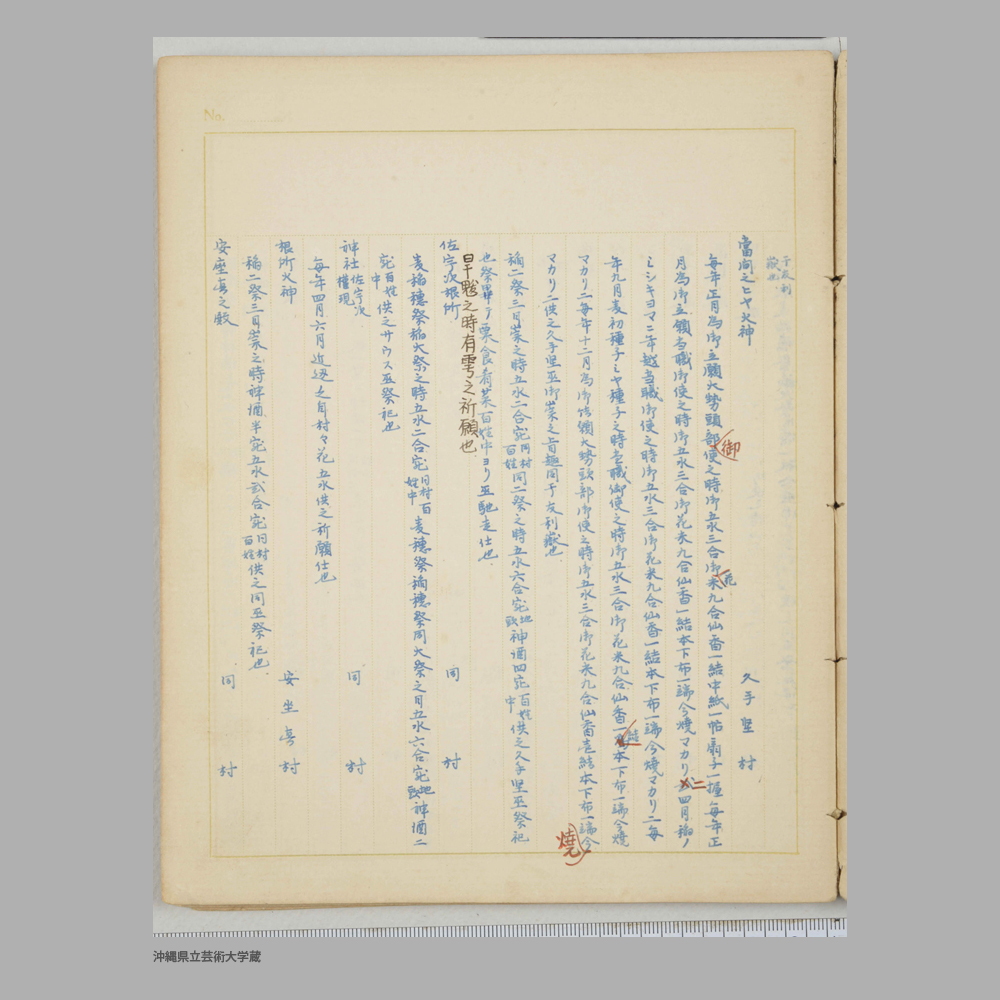 No.
當間之ヒヤ火神 久手堅村
毎年正月為御立願大勢頭部御使之時御五水三合御花米九合仙香一結中紙一帖扇子一握毎年正
月為御立願当職御使之時御五水三合御花米九合仙香一結本下布一端今焼マカリ二四月稲ノ
ミシキヨマニ年越当職御使之時御五水三合御花米九合仙香一結本下布一端今焼マカリ二毎
年九月麦初種子ミヤ種子之時当職御使之時御五水三合御花米九合仙香一結本下布一端今焼
マカリ二毎年十二月為御結願大勢頭部御使之時御五水三合御花米九合仙香壱結本下布一端今焼
マカリ二供之久手堅巫御崇之首尾同于友利嶽也
稲二祭三月崇之時五水二合宛同村百姓同二祭之時五水六合宛地頭神酒四宛百姓中供之久手堅巫祭祀
也祭畢テ粟食肴菜百姓中ヨリ巫馳走仕也
旱魃之時有雩之祈願也
佐宇次根所 同村
麦稲穂祭稲大祭之時五水二合宛同村百姓中麦穂祭稲穂祭同大祭之月五水六合宛地頭神酒二
宛百姓中供之サウス巫祭祀也
神社佐宇次權現 同村
毎年四月六月近辺之自村々花五水供之祈願仕也
根所火神 安座真村
稲二祭三月崇之時神酒半宛五水弐合宛同村百姓供之同巫祭祀也
安座真之殿 同村
沖縄県立芸術大学蔵